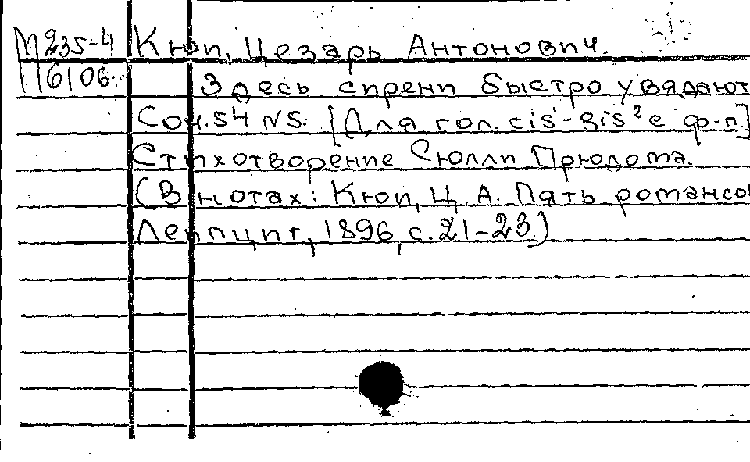 М 235-4 Кюи, Цезарь Антонович.
116106 Здесь сирени быстро увядают
Соч. 54 N5. [Для гол. cis¹-gis² с ф-п.]
Стихотворение Сюлли Прюдома.
(В нотах: Кюи, Ц. А. Пять романсов
Лейпциг, 1896, с. 21-23.)